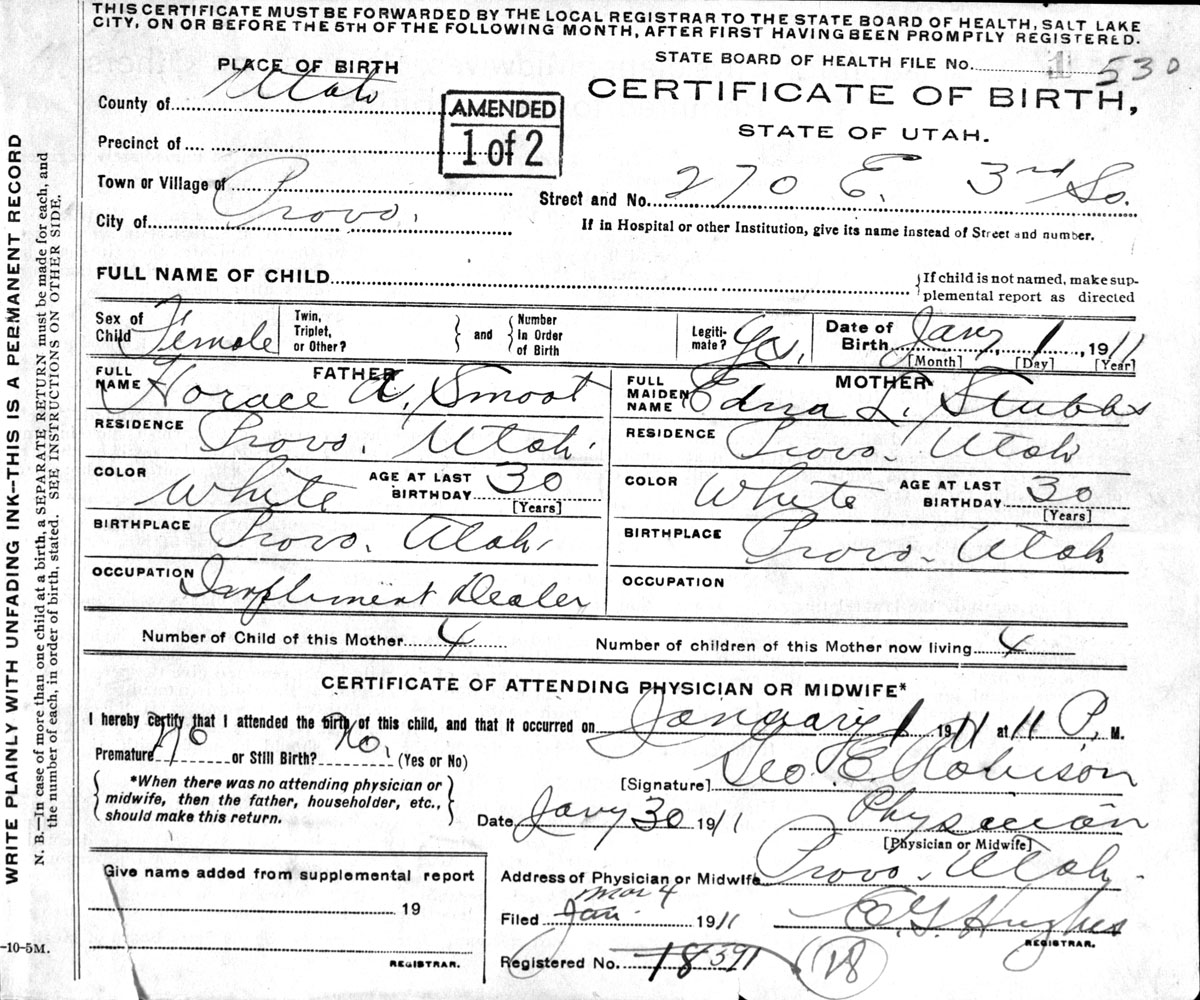 THIS CERTIFICATE MUST BE FORWARDED BY THE LOCAL REGISTRAR TO THE STATE BOARD OF HEALTH, SALT LAKE
CITY, ON OR BEFORE THE 5TH OF THE FOLLOWING MONTH, AFTER FIRST HAVING BEEN PROMPTLY REGISTERED.
STATE BOARD OF HEALTH FILE No. 1 530
PLACE OF BIRTH
CERTIFICATE OF BIRTH,
STATE OF UTAH.
County of Utah
AMENDED
1 of 2
Precinct of
Town or Village of
City of Provo.
Street and No. 270 E. 3rd So.
If in Hospital or other Institution, give its name instead of Street and number.
FULL NAME OF CHILD
If child is not named, make sup-
plemental report as directed
Sex of Child Female
Twin, Triplet, or Other?
and
Number In Order of Birth
Legiti-mate? Yes.
Date of Birth Jany 1, 1911
[Month] [Day] [Year]
FATHER
FULL NAME Horace A. Smoot
MOTHER
FULL MAIDEN NAME Edna L. Stubbs
RESIDENCE Provo. Utah.
RESIDENCE Provo. Utah
COLOR White AGE AT LAST BIRTHDAY 30 [Years]
COLOR White AGE AT LAST BIRTHDAY 30 [Years]
BIRTHPLACE Provo. Utah.
BIRTHPLACE Provo. Utah
OCCUPATION Impliment Dealer
OCCUPATION
Number of Child of this Mother 4
Number of children of this Mother now living 4
CERTIFICATE OF ATTENDING PHYSICIAN OR MIDWIFE*
I hereby certify that I attended the birth of this child, and that it occurred on January 1 1911 at 11 P. M.
Premature No or Still Birth? No. (Yes or No)
[Signature] Geo. E. Robison
*When there was no attending physician or
midwife, then the father, householder, etc.,
should make this return.
Date Jany 30 1911
Physician
[Physician or Midwife]
Address of Physician or Midwife Provo. Utah.
Give name added from supplemental report
19
REGISTRAR.
Mar 4
Filed Jan. 1911
E. G. Hughes
REGISTRAR.
Registered No. 18
18
WRITE PLAINLY WITH UNFADING INK--THIS IS A PERMANENT RECORD
N. B.—In case of more than one child at a birth, a SEPARATE RETURN must be made for each, and
the number of each, in order of birth, stated. SEE INSTRUCTIONS ON OTHER SIDE.
-10-5M.